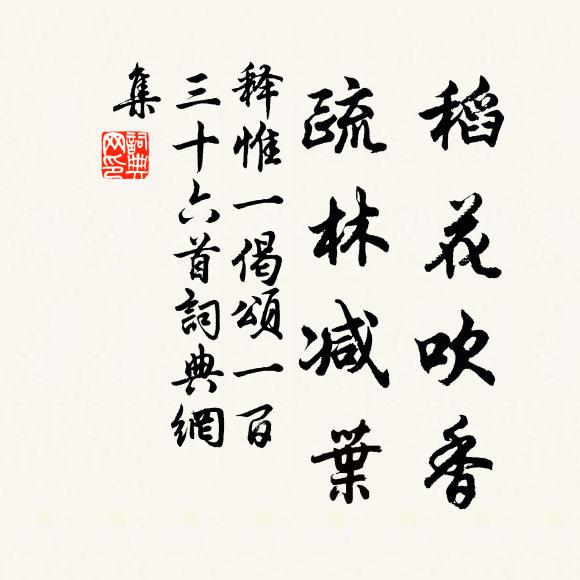 稻花吹香
疏林减葉
释惟一偈頌一百
三十六首詞典網
集
詞典
网印